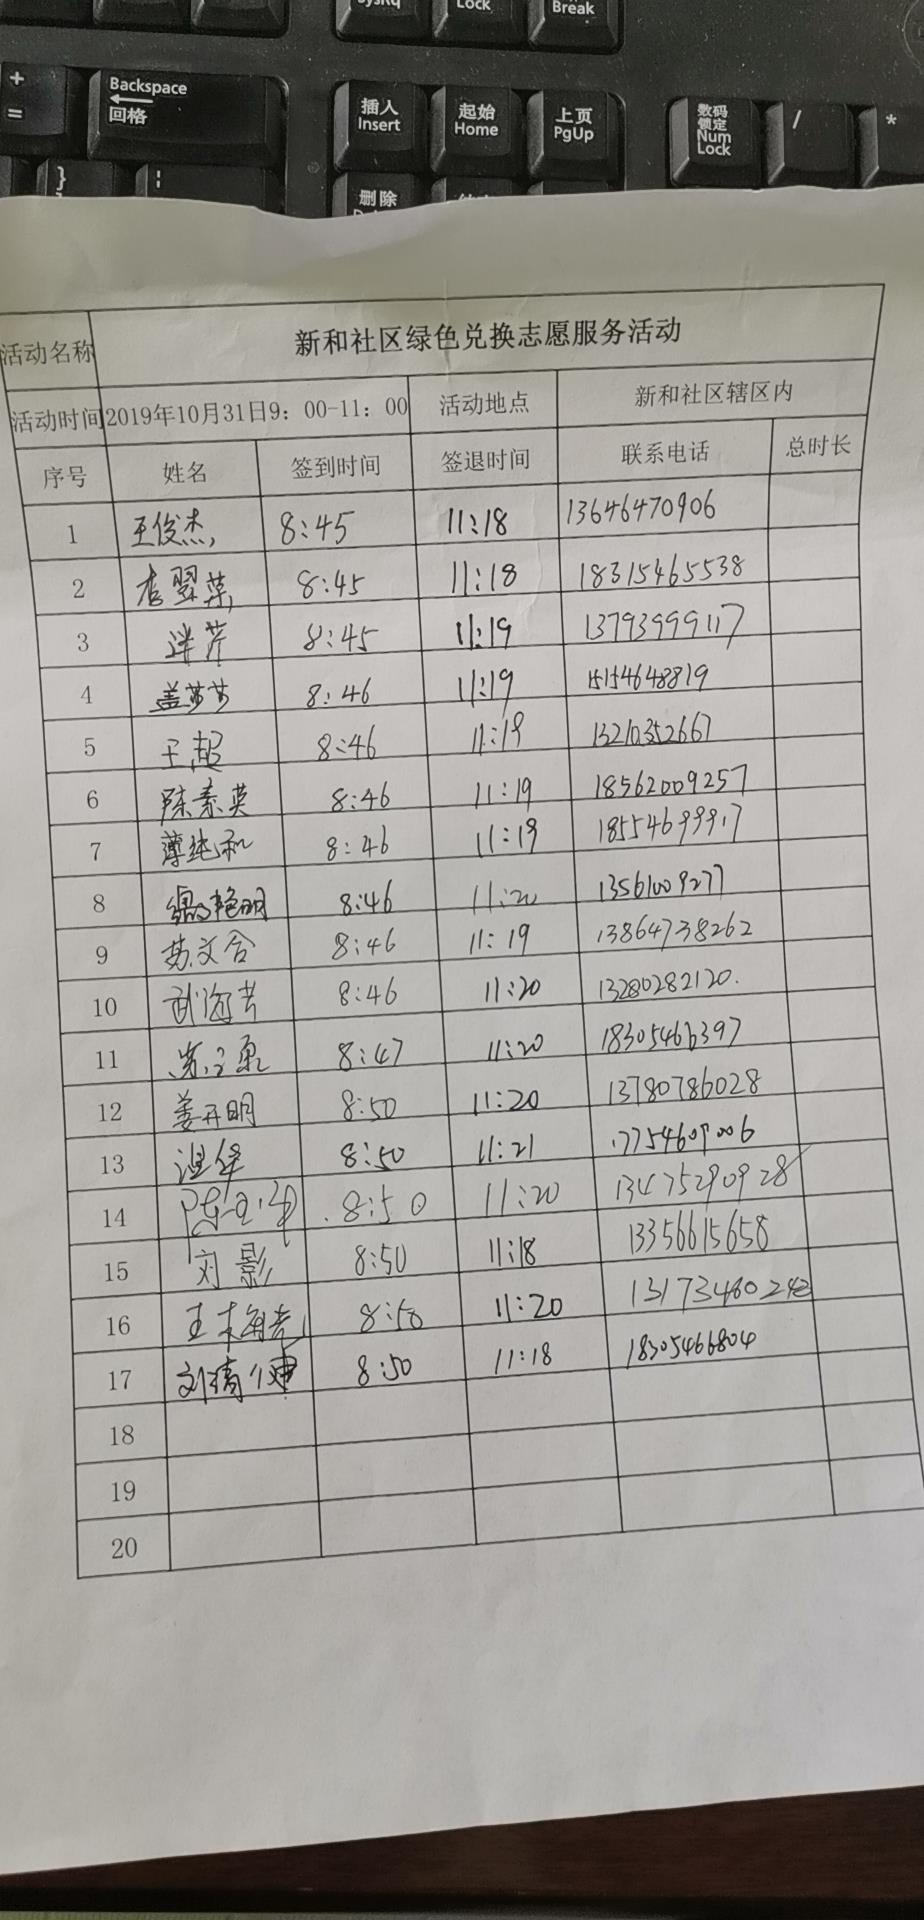 SysRq Lock Break
+ =
Backspace 回格
插入 Insert
起始 Home
上页 PgUp
数码锁定 Num Lock
/
*
}
删除
活动名称 新和社区绿色兑换志愿服务活动
活动时间 2019年10月31日9：00-11：00 活动地点 新和社区辖区内
序号 姓名 签到时间 签退时间 联系电话 总时长
1 王俊杰 8:45 11:18 13646470906
2 8:45 11:18 18315465538
3 8:45 11:19 13793999117
4 盖莎莎 8:46 11:19 15154648819
5 王超 8:46 11:19 13210352667
6 陈素英 8:46 11:19 18562009257
7 薄纯和 8:46 11:19 18554699917
8 艳明 8:46 11:20 13561009277
9 苏文合 8:46 11:19 13864738262
10 武海芳 8:46 11:20 13280282120.
11 8:47 11:20 18305466397
12 姜开明 8:50 11:20 13780786028
13 8:50 11:21 17754609006
14 8:50 11:20 13475290928
15 刘影 8:50 11:18 13356615658
16 8:50 11:20 13173480242
17 刘清健 8:50 11:18 18305466804
18
19
20